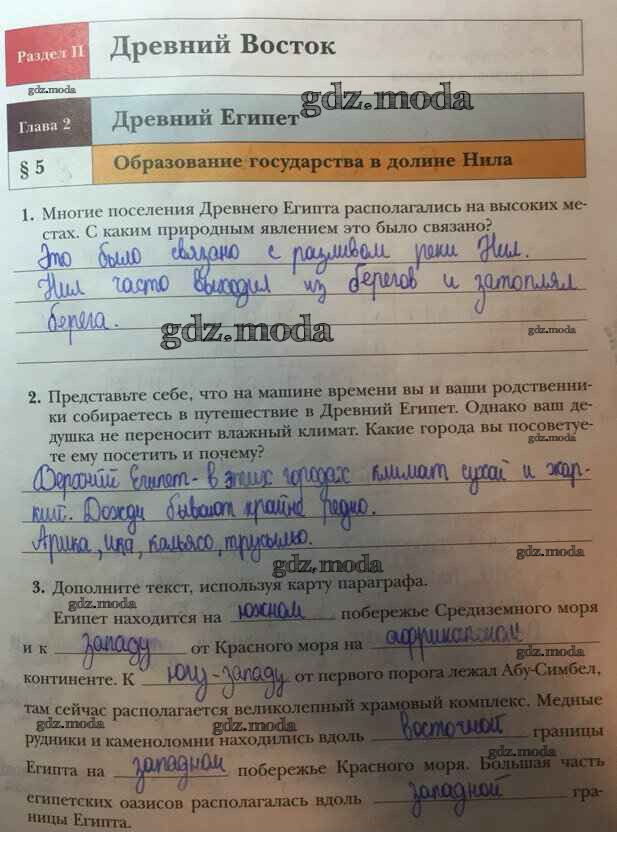 Раздел II
Древний Восток
gdz.moda
gdz.moda
Глава 2
Древний Египет
§ 5
Образование государства в долине Нила
1. Многие поселения Древнего Египта располагались на высоких ме-
стах. С каким природным явлением это было связано?
Это было связано с разливом реки Нил.
Нил часто выходил из берегов и затоплял
берега.
gdz.moda
gdz.moda
2. Представьте себе, что на машине времени вы и ваши родственни-
ки собираетесь в путешествие в Древний Египет. Однако ваш де-
душка не переносит влажный климат. Какие города вы посоветуе-
gdz.moda
те ему посетить и почему?
Верхний Египет - в этих городах климат сухой и жар-
кий. Дожди бывают крайне редко.
Арика, ика, кальясо, трусильо.
gdz.moda
gdz.moda
3. Дополните текст, используя карту параграфа.
gdz.moda
Египет находится на южном побережье Средиземного моря
и к западу от Красного моря на африканском
gdz.moda
континенте. К юго-западу от первого порога лежал Абу-Симбел,
там сейчас располагается великолепный храмовый комплекс. Медные
gdz.moda
gdz.moda
рудники и каменоломни находились вдоль восточной границы
gdz.moda
Египта на западном побережье Красного моря. Большая часть
египетских оазисов располагалась вдоль западной гра-
ницы Египта.
gdz.moda